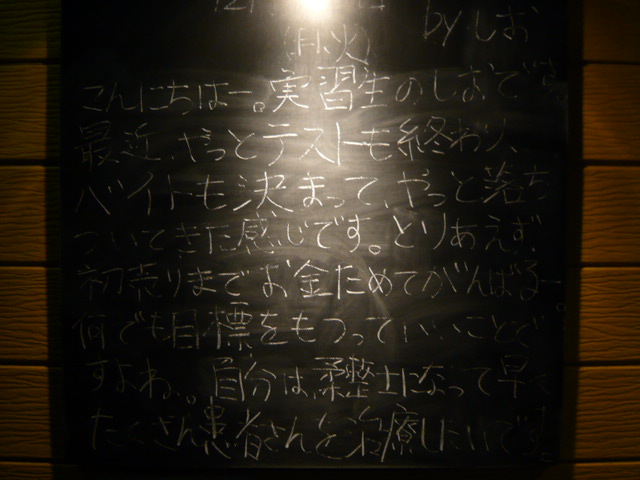 by しお
(月、火)
こんにちはー。実習生のしおです
最近、やっとテストも終わり、
バイトも決まって、やっと落ち
ついてきた感じです。とりあえず、
初売りまでお金ためてがんばるー。
何でも目標をもつっていいことで
すよね。自分は、柔整士になって早く
たくさん患者さんを治療したいです。